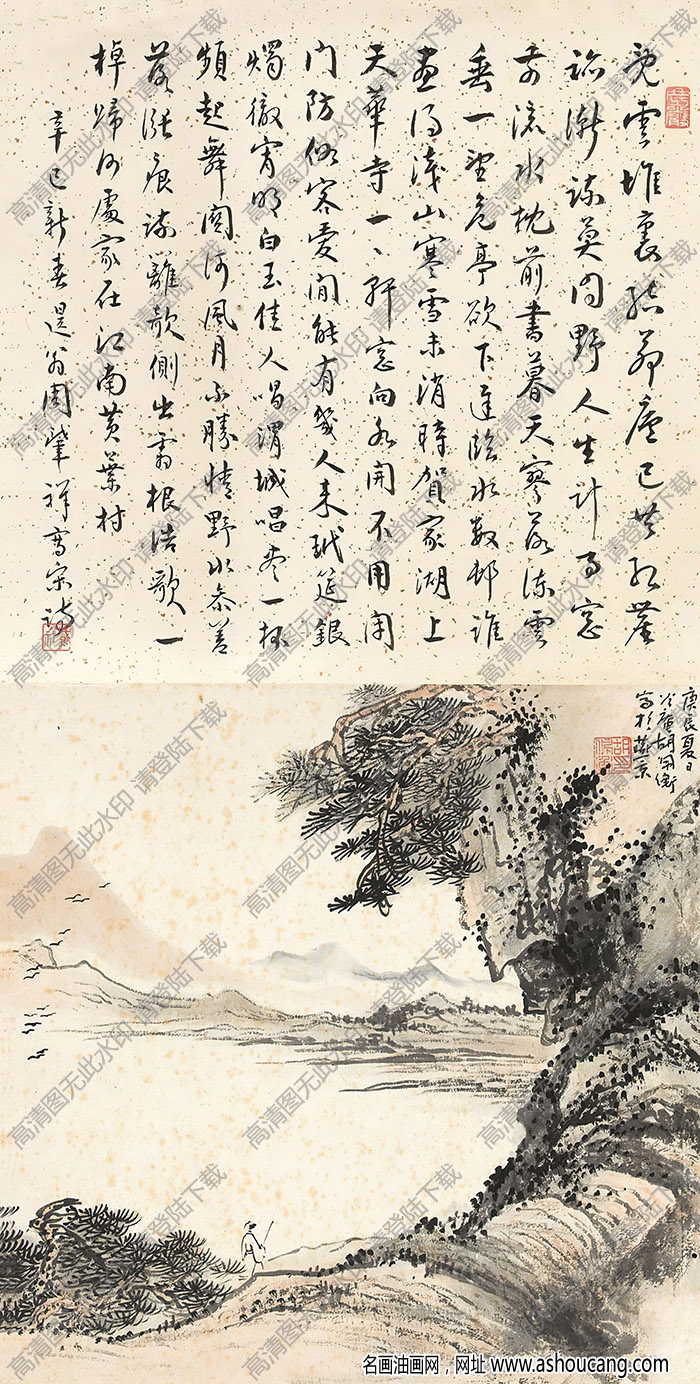 亂雲堆裏結茅廬已共紅塵
跡漸疎莫問野人生計事窓
前流水枕前書暮天寥落凍雲
垂一望危亭欲下遲臨水數邨誰
畫得淺山寒雪未消時賀家湖上
天華寺一〻軒窓向水開不用閉
門防俗客愛閒能有幾人來玳筵銀
燭徹宵明白玉佳人唱渭城唱盡一杯
須起舞關河風月不勝情野水參差
落漲痕疎籬欹側出霜根浩歌一
棹歸何處家在江南黃葉村
辛巳新春退翁周肇祥寫宋詩
庚辰夏日
冷庵胡佩衡
寫於舊京
高清图无此水印 请登陆下载
名画油画网，网址 www.ashoucang.com